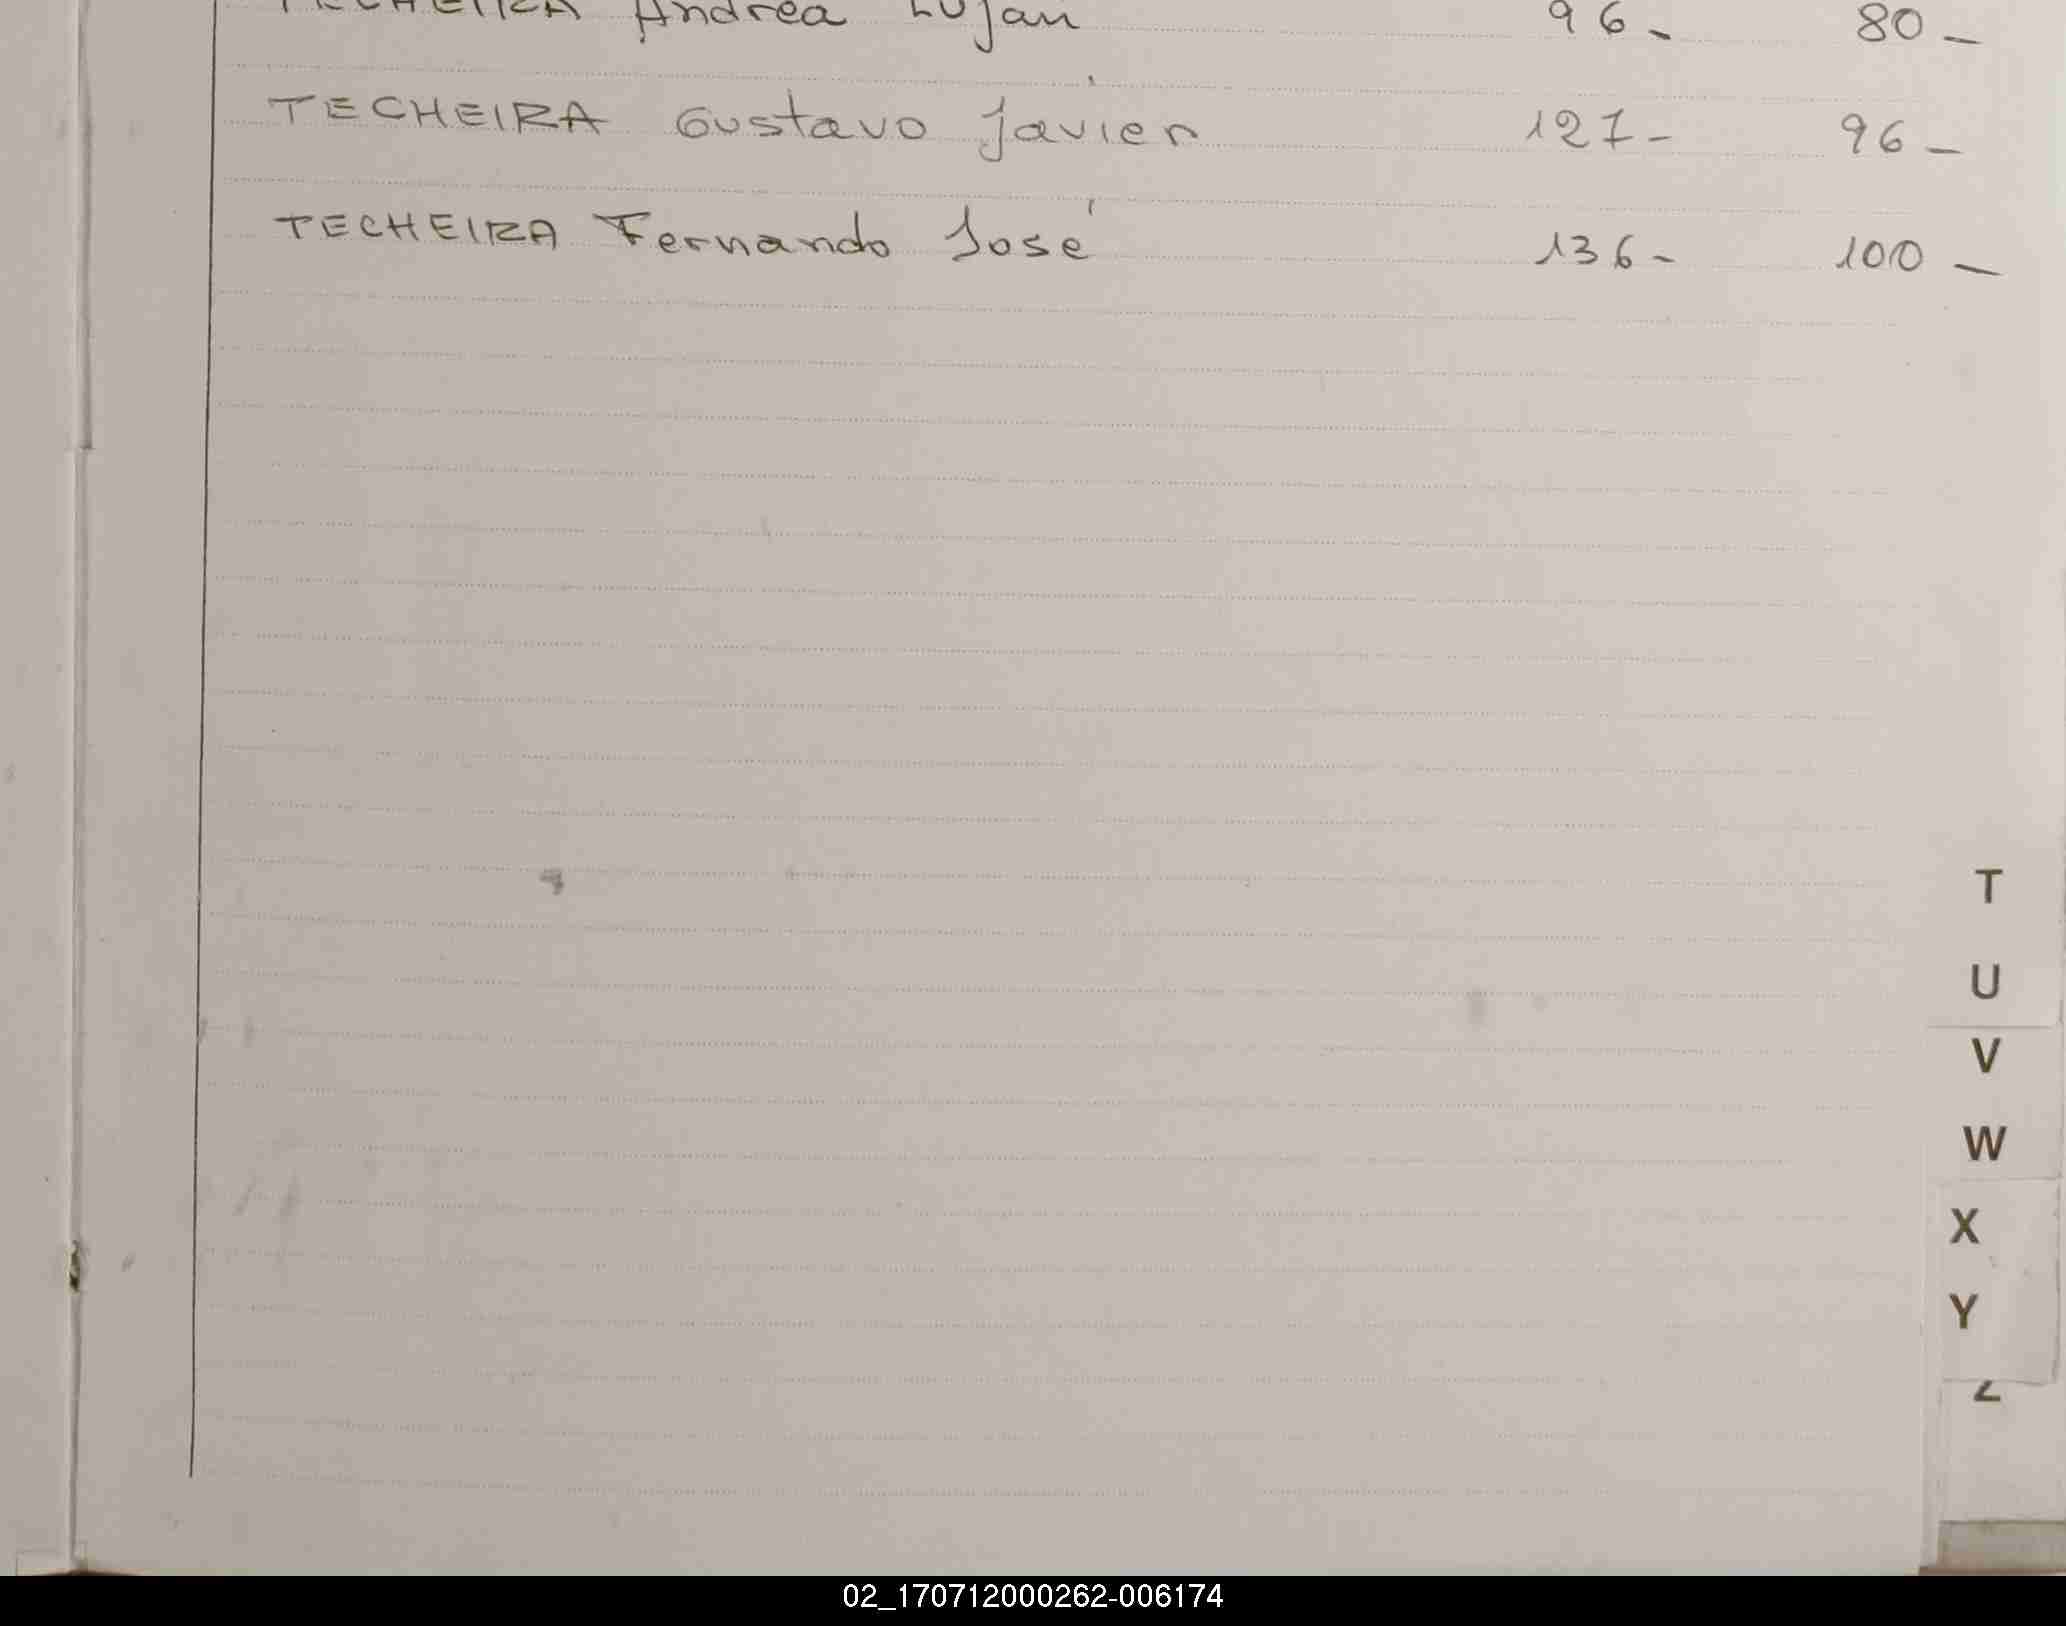 TECHEIRA Andrea Lujan 96- 80-
TECHEIRA Gustavo javier 127- 96-
TECHEIRA Fernando José 136- 100-
T
U
V
W
X
Y
Z
02_170712000262-006174